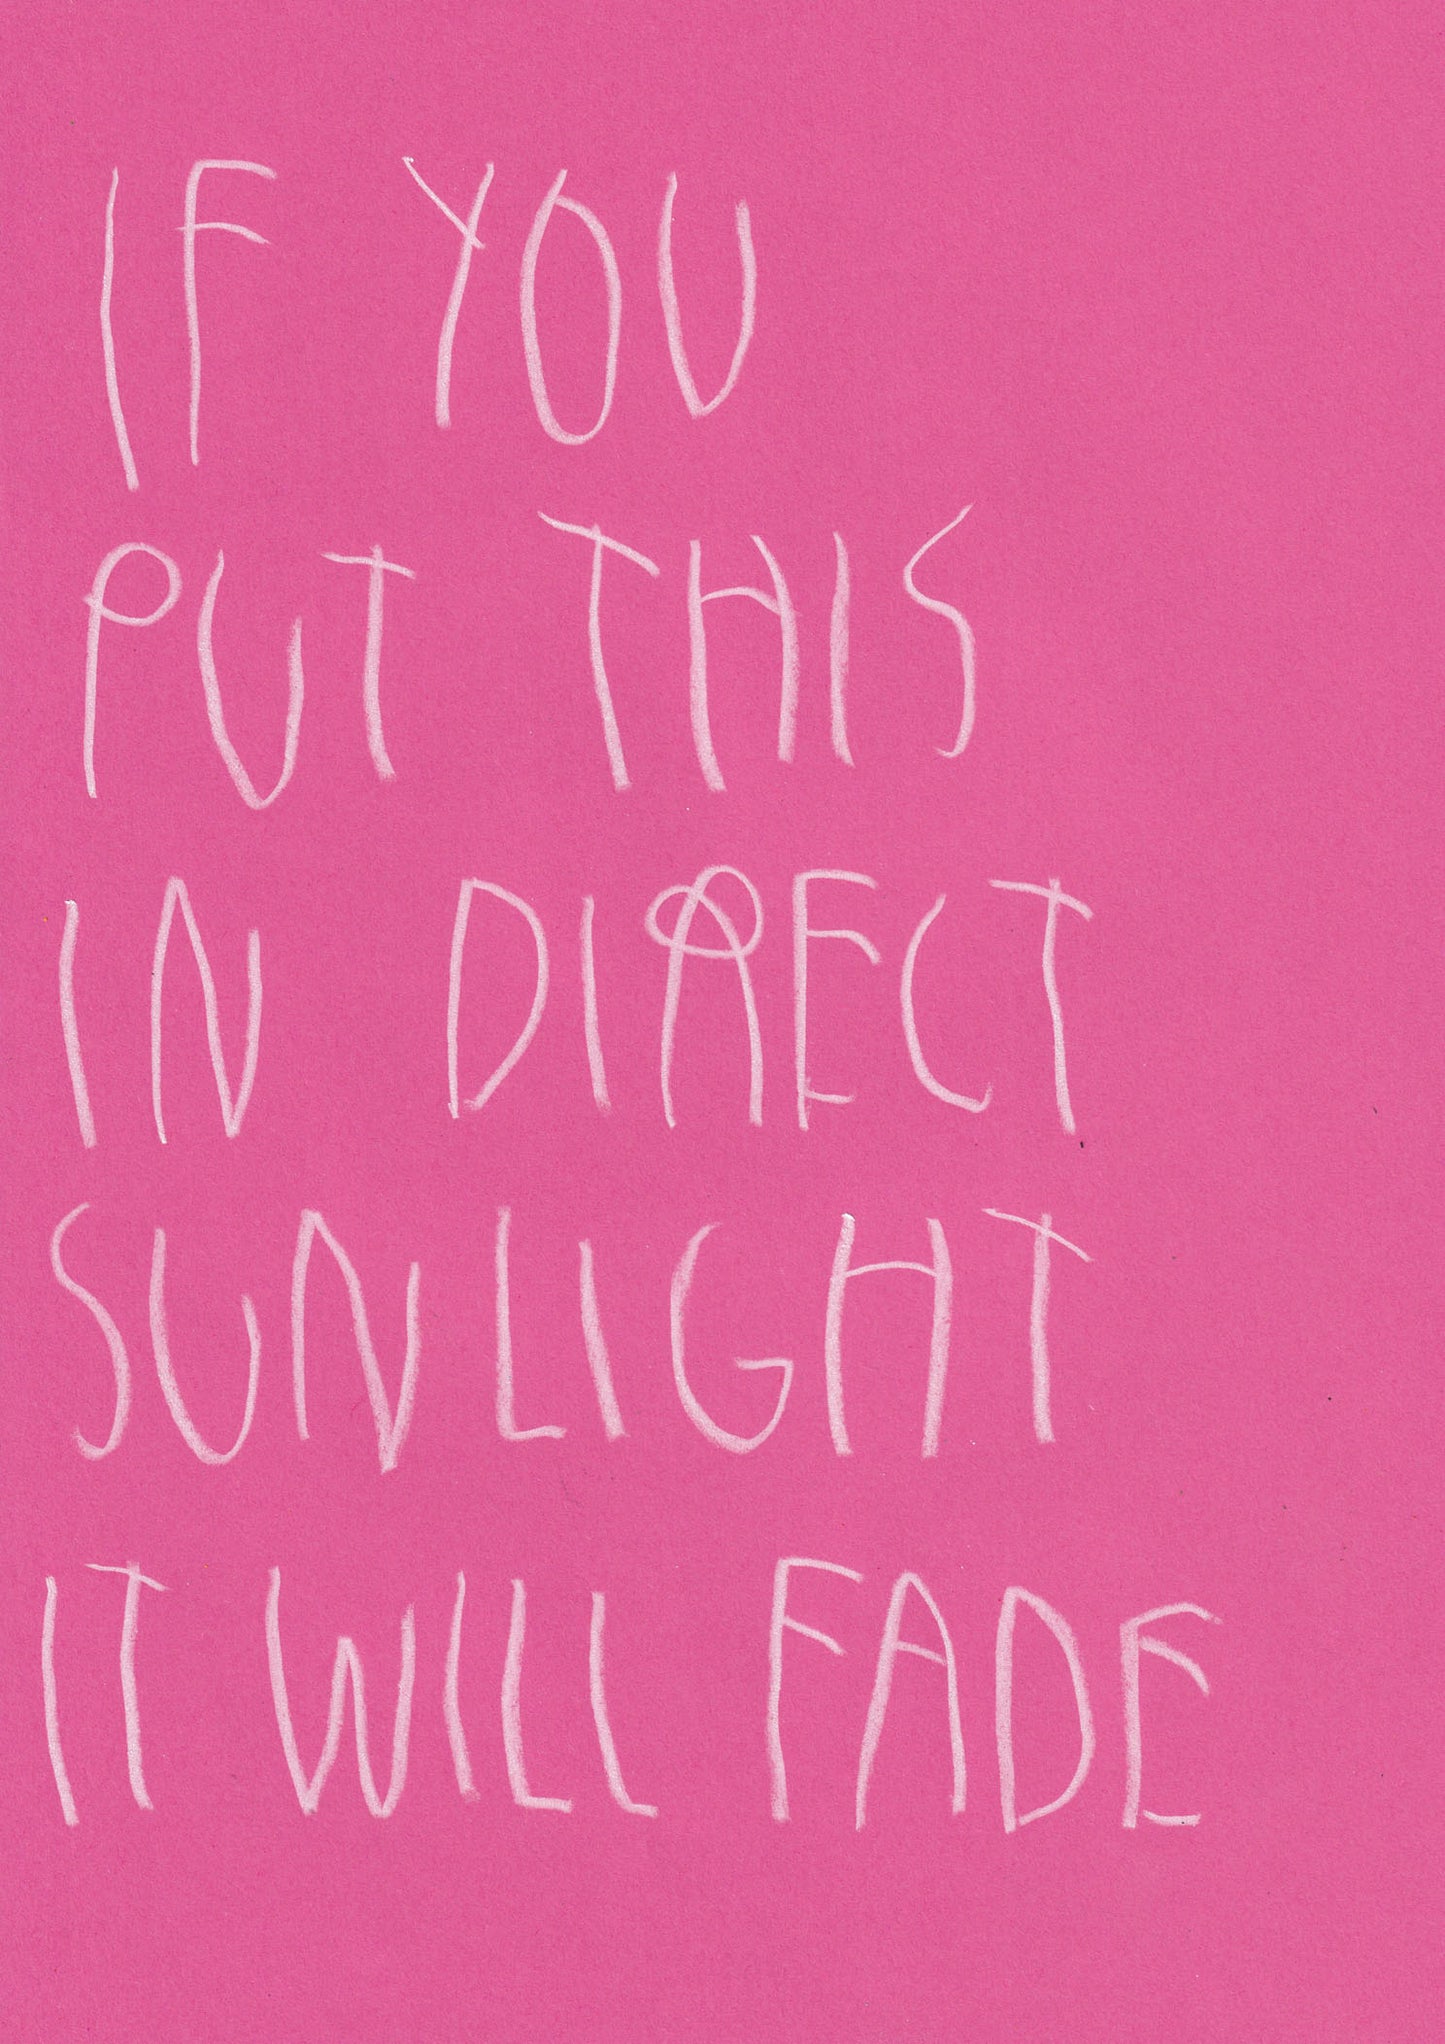 IF YOU
PUT THIS
IN DIRECT
SUNLIGHT
IT WILL FADE